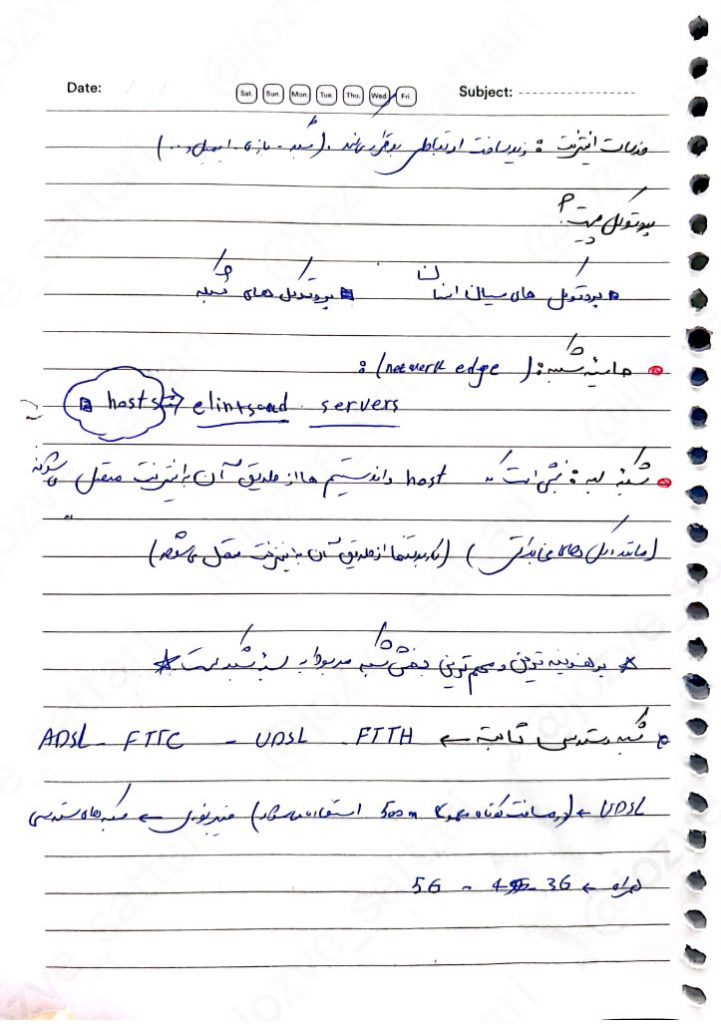 Date: / / Sat. Sun. Mon. Tue. Thu. Wed. Fri. Subject:
خدمات اینترنت : زیرساخت ارتباطی برقرار می‌کند . (شبکه - بازی - ایمیل و ...)
پروتوکل چیست؟
پروتوکل های میان انسان پروتوکل های شبکه
حاشیه شبکه : (network edge) :
hosts => elintsand servers
شبکه لبه : بخشی است که host و اند سیستم ها از طریق آن به اینترنت متصل می‌شوند
(مانند لینک های مخابراتی) (کاربر تنها از طریق آن به اینترنت متصل می‌شود)
* پر هزینه ترین و مهم ترین بخش شبکه مربوط به لبه شبکه است *
شبکه دسترسی ثابت ← ADSL - FTTC - VDSL FTTH
VDSL ← (در مسافت کوتاه معمولا 500m استفاده می‌شود) فیبر نوری ← شبکه های دسترسی
همراه ← 3G - 4G - 5G
@jozve_sattari